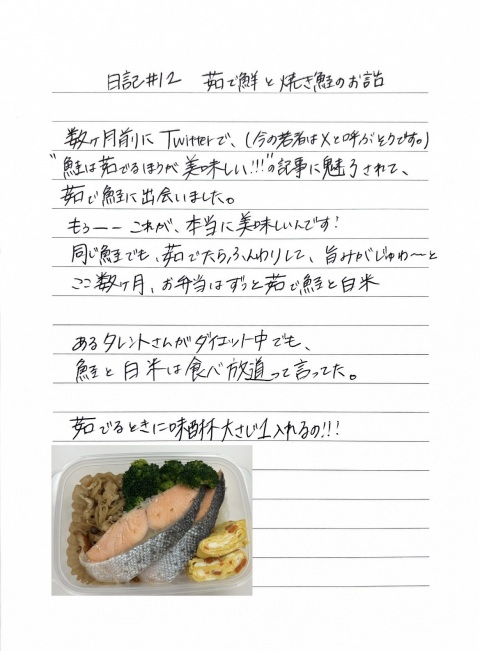 日記#12 茹で鮮と焼き鮭のお話
数ヶ月前にTwitterで、(今の若者はXと呼ぶとりです。)
"鮭は茹でるほうが美味しい!!!"の記事に魅了されて、
茹で鮭に出会いました。
もぅーー これが、本当に美味しいんです!
同じ鮭でも、茹でたらふんわりして、旨みがじゅわ〜と
ここ数ヶ月、お弁当はずっと茹で鮭と白米
あるタレントさんがダイエット中でも、
鮭と白米は食べ放道って言ってた。
茹でるときに味醂大さじ1入れるの!!!